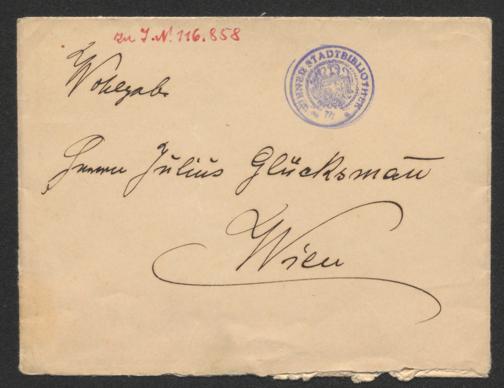 zu J.N. 116.858
WIENER STADTBIBLIOTHEK
Wohlgeb.
Herrn Julius Glücksmañ
Wien